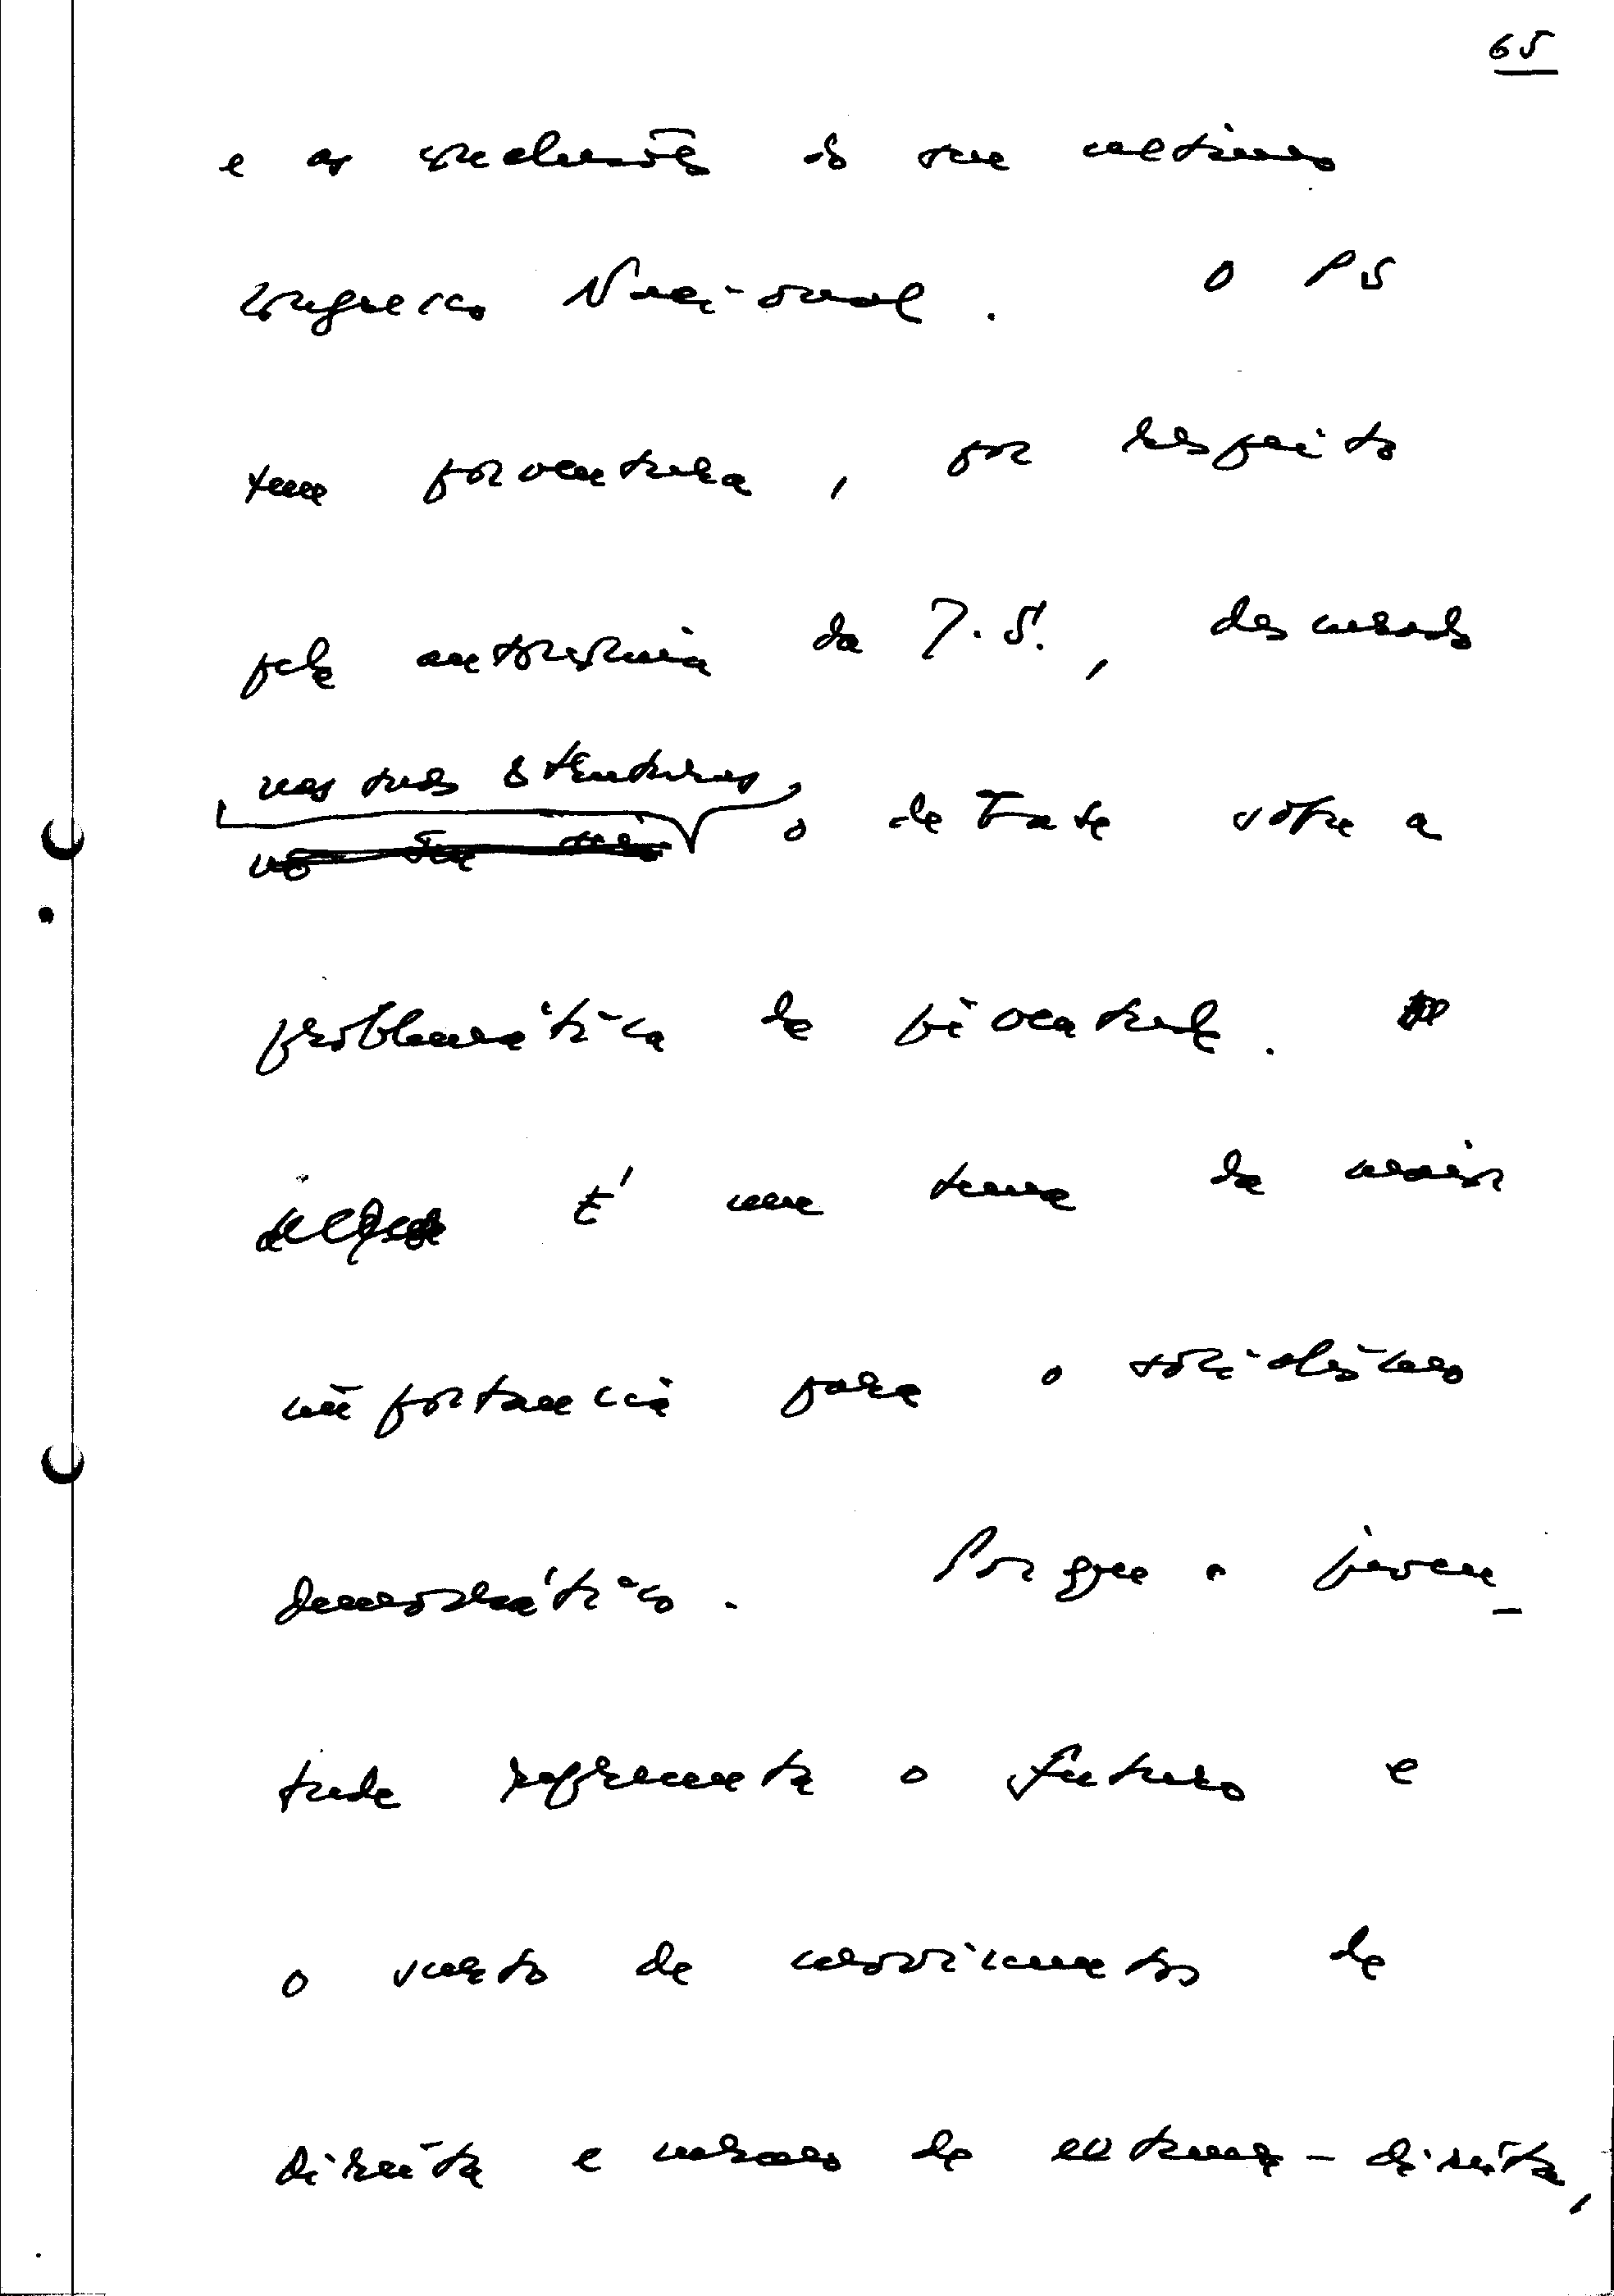 65
e as conclusões do seu último
Congresso Nacional. O PS
tem porventura, por respeito
pela autonomia da J.S., descurado
nas suas estruturas,
o debate sobre a
problemática da juventude.
É um tema da maior
importância para o socialismo
democrático. Porque a juven-
tude representa o futuro e
o surto de movimentos de
direita e mesmo de extrema-direita,